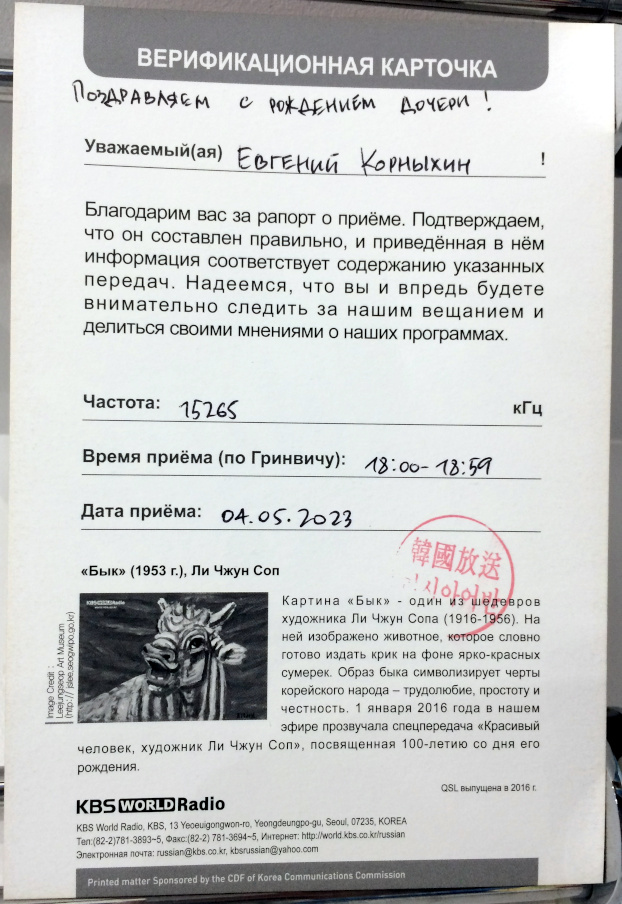 ВЕРИФИКАЦИОННАЯ КАРТОЧКА
Поздравляем с рождением дочери!
Уважаемый(ая) Евгений Корныхин !
Благодарим вас за рапорт о приёме. Подтверждаем,
что он составлен правильно, и приведённая в нём
информация соответствует содержанию указанных
передач. Надеемся, что вы и впредь будете
внимательно следить за нашим вещанием и
делиться своими мнениями о наших программах.
Частота: 15265 кГц
Время приёма (по Гринвичу): 18:00-18:59
Дата приёма: 04.05.2023
韓國放送
러시아어방
«Бык» (1953 г.), Ли Чжун Соп
KBS WORLD Radio
Image Credit :
Leejungseop Art Museum
(http:// jslee.seogwipo.go.kr)
Картина «Бык» - один из шедевров
художника Ли Чжун Сопа (1916-1956). На
ней изображено животное, которое словно
готово издать крик на фоне ярко-красных
сумерек. Образ быка символизирует черты
корейского народа – трудолюбие, простоту и
честность. 1 января 2016 года в нашем
эфире прозвучала спецпередача «Красивый
человек, художник Ли Чжун Соп», посвященная 100-летию со дня его
рождения.
QSL выпущена в 2016 г.
KBS WORLD Radio
KBS World Radio, KBS, 13 Yeoeuigongwon-ro, Yeongdeungpo-gu, Seoul, 07235, KOREA
Тел:(82-2)781-3893~5, Факс:(82-2) 781-3694~5, Интернет: http://world.kbs.co.kr/russian
Электронная почта: russian@kbs.co.kr, kbsrussian@yahoo.com
Printed matter Sponsored by the CDF of Korea Communications Commission